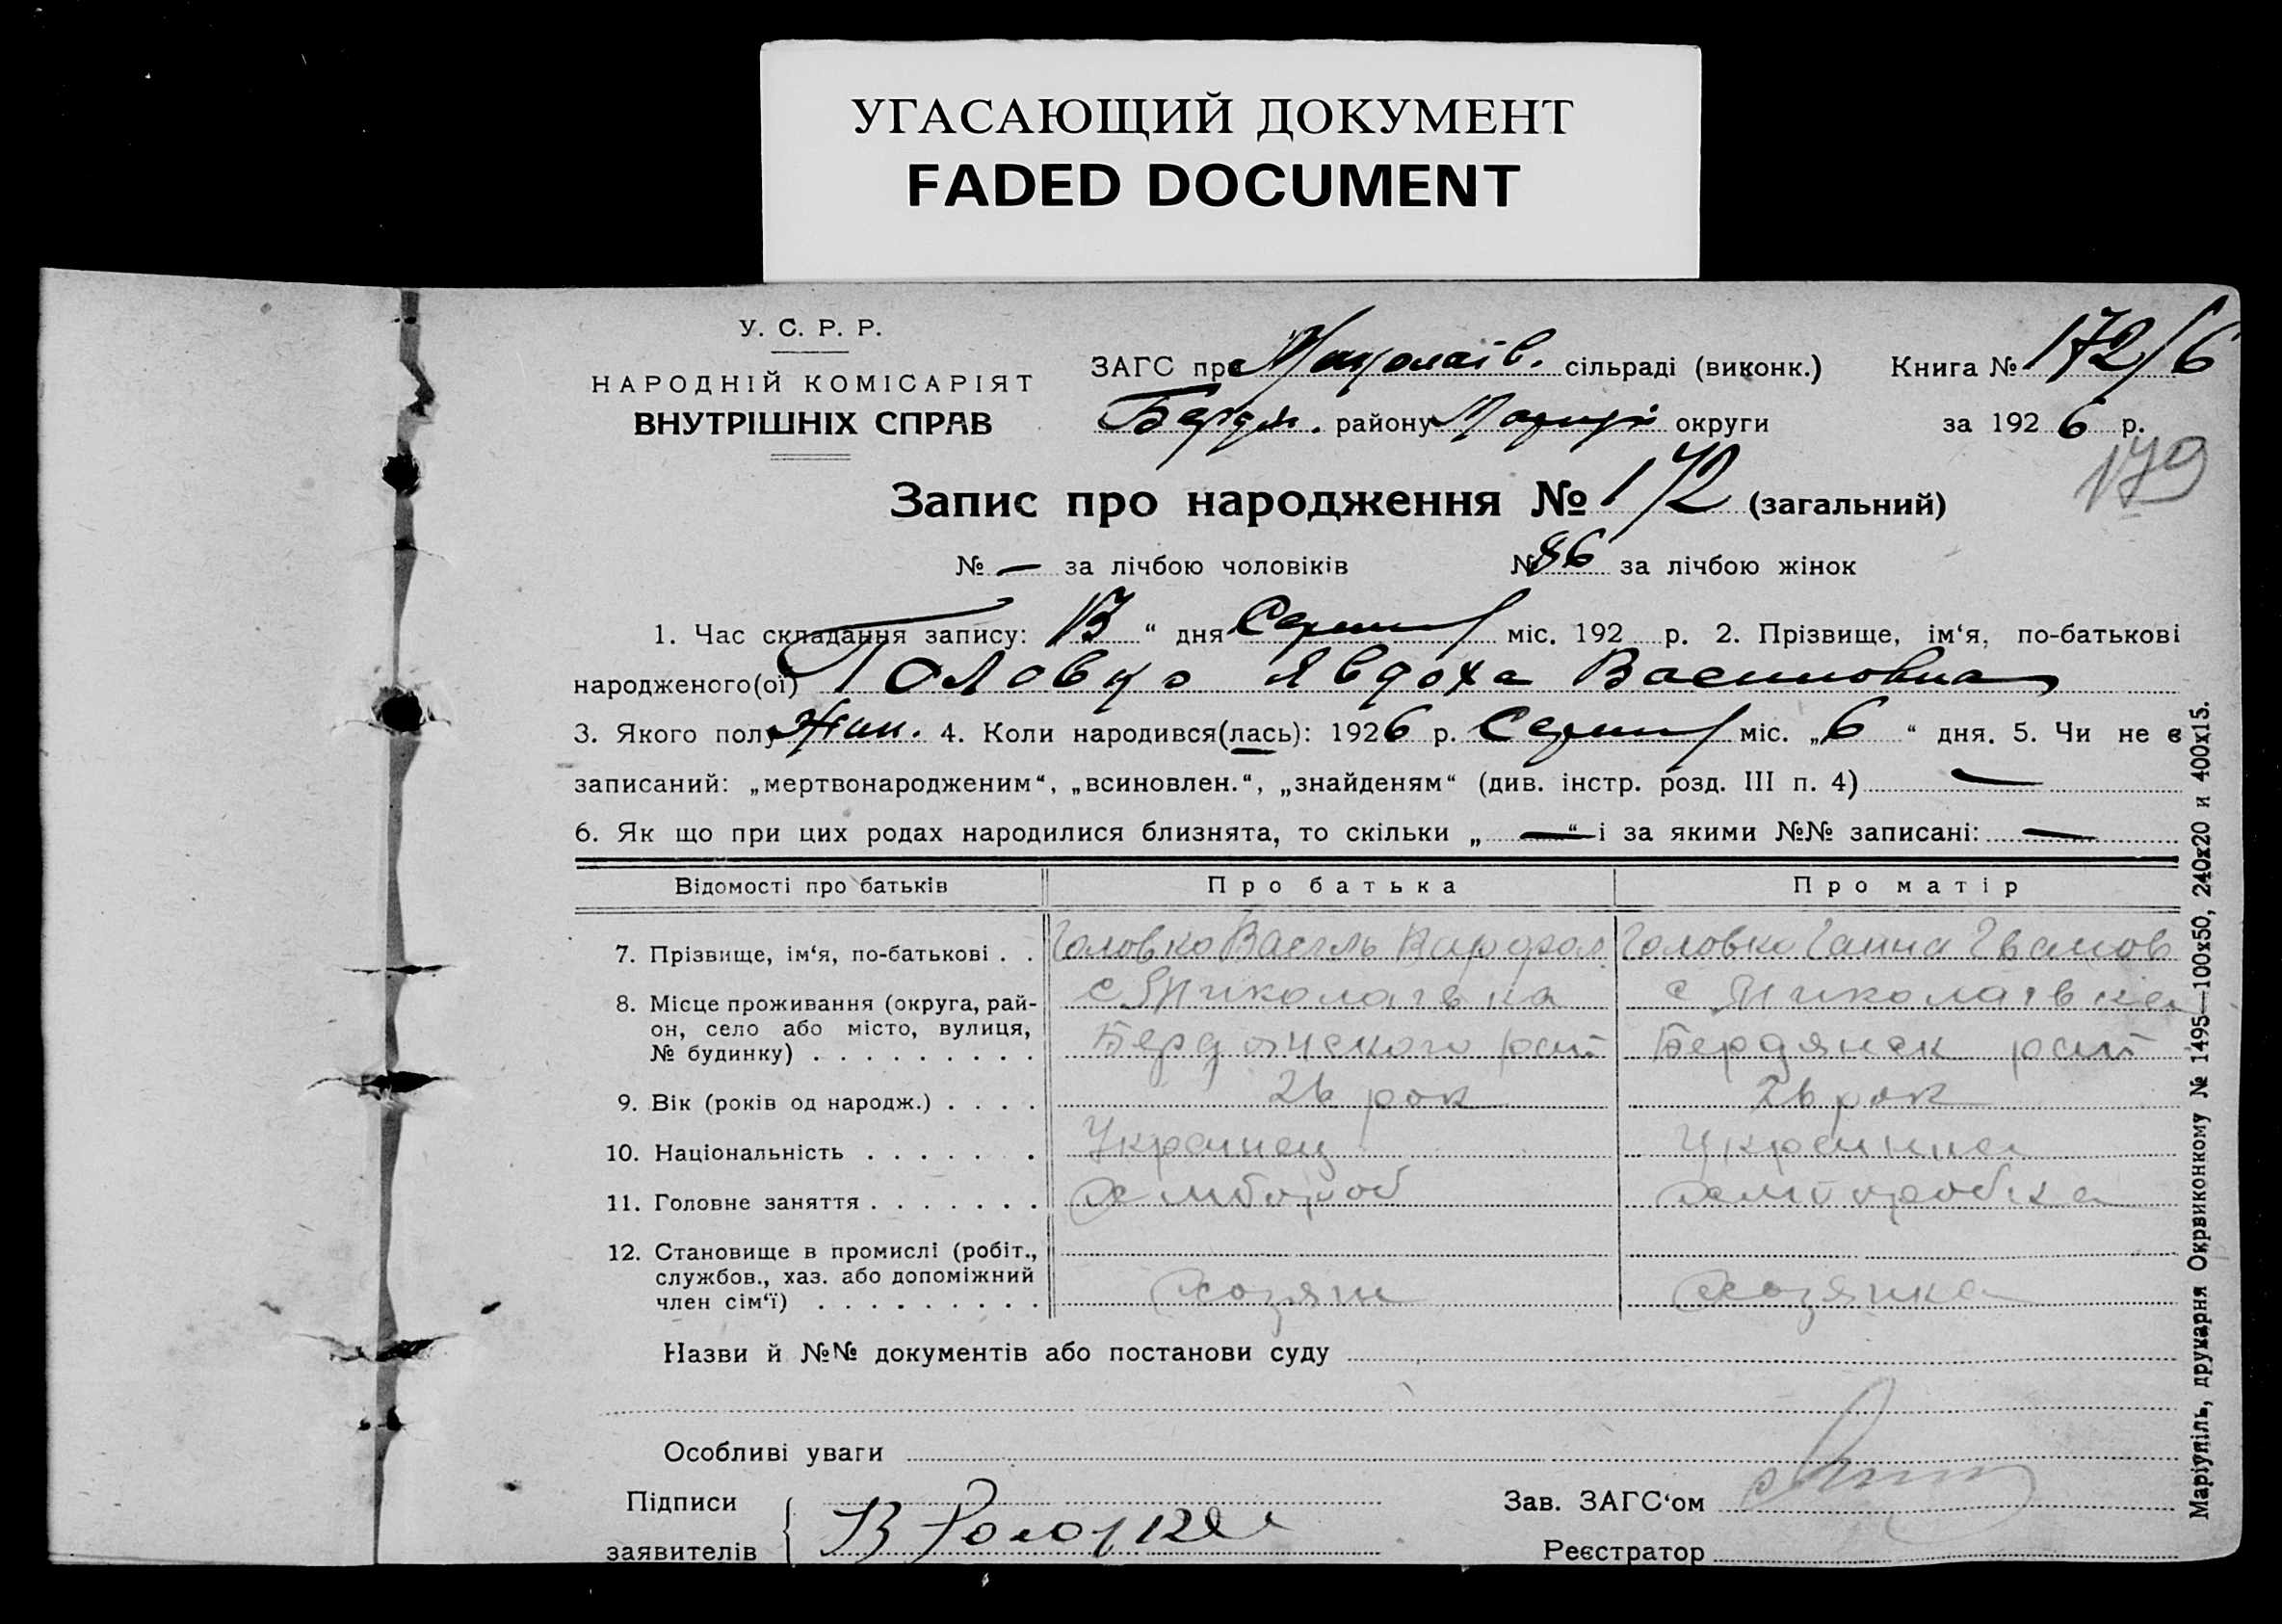 УГАСАЮЩИЙ ДОКУМЕНТ
FADED DOCUMENT
У. С. Р. Р.
НАРОДНІЙ КОМІСАРІЯТ
ВНУТРІШНІХ СПРАВ
ЗАГС при Миколаїв. сільраді (виконк.) Книга № 172/6
Бердян. району округи за 1926 р.
179
Запис про народження № 172 (загальний)
№ — за лічбою чоловіків № 86 за лічбою жінок
1. Час складання запису: 13 “ дня Серпня міс. 192 р. 2. Прізвище, ім‘я, по-батькові
народженого(ої) Головко Явдоха Василовна
3. Якого полу Жин. 4. Коли народився(лась): 1926 р. Серпня міс. „6“ дня. 5. Чи не є
записаний: „мертвонародженим“, „всиновлен.“, „знайденям“ (див. інстр. розд. III п. 4) —
6. Як що при цих родах народилися близнята, то скільки „ — “ і за якими №№ записані: —
Відомості про батьків Про батька Про матір
7. Прізвище, ім‘я, по-батькові . . Головко Василь Головко Ганна Иванов
8. Місце проживання (округа, рай- с Миколаівка с Миколаівка
он, село або місто, вулиця,
№ будинку) . . . . . . . . . Бердянского рай Бердянск рай
9. Вік (років од народж.) . . . . 26 рок 26 рок
10. Національність . . . . . . . Украинец Украинка
11. Головне заняття . . . . . . . Хлібороб хліборобка
12. Становище в промислі (робіт.,
службов., хаз. або допоміжний
член сім‘ї) . . . . . . . . . Хозяин Хозяика
Назви й №№ документів або постанови суду
Особливі уваги
Підписи
заявителів В
Зав. ЗАГС‘ом
Реєстратор
Маріупіль, друкарня Окрвиконкому № 1495—100х50, 240х20 и 400х15.